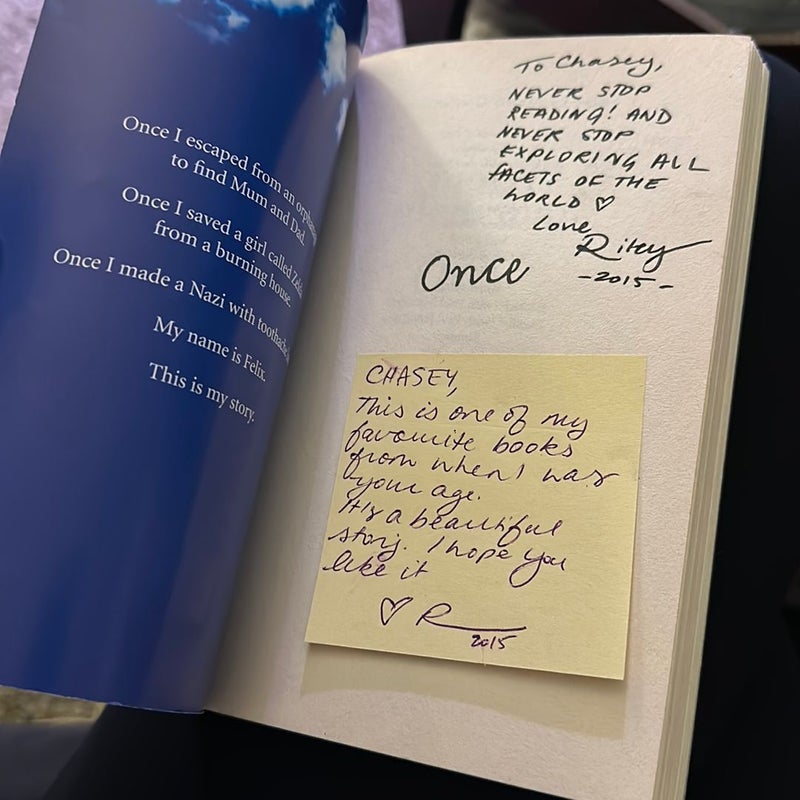 Once I escaped from an
to find Mum and Dad.
Once I saved a girl called
from a burning house.
Once I made a Nazi with toothache
My name is Felix.
This is my story.
To Chasey,
NEVER STOP
READING! AND
NEVER STOP
EXPLORING ALL
FACETS OF THE
WORLD ♡
Love,
Riley
-2015-
Once
CHASEY,
This is one of my
favourite books
from when I was
your age.
It's a beautiful
story. I hope you
like it
♡ R
2015